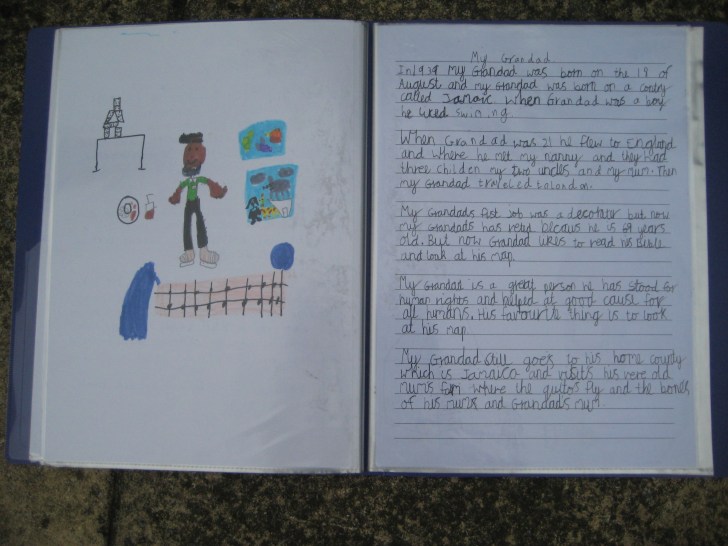 My Grandad
In 1939 My Grandad was born on the 19 of
August and my Grandad was born on a contry
called Jamaic. When Grandad was a boy
he liked swiming
When Grandad was 21 he flew to England
and where he met my nanny and they had
three childen my two uncles and my mum. Then
my Grandad traveled to london.
My Grandads fist job was a decotater but now
my Grandads has retied because he is 69 years
old. But now Grandad likes to read his bible
and look at his map.
My Grandad is a great person he has stood for
human rights and helped at good cause for
all humans. His favourite thing is to look
at his map
My Grandad still goes to his home country
which is Jamaica and visits his vere old
mums farm where the guitos fly and the bones
of his mums and Grandads mum.